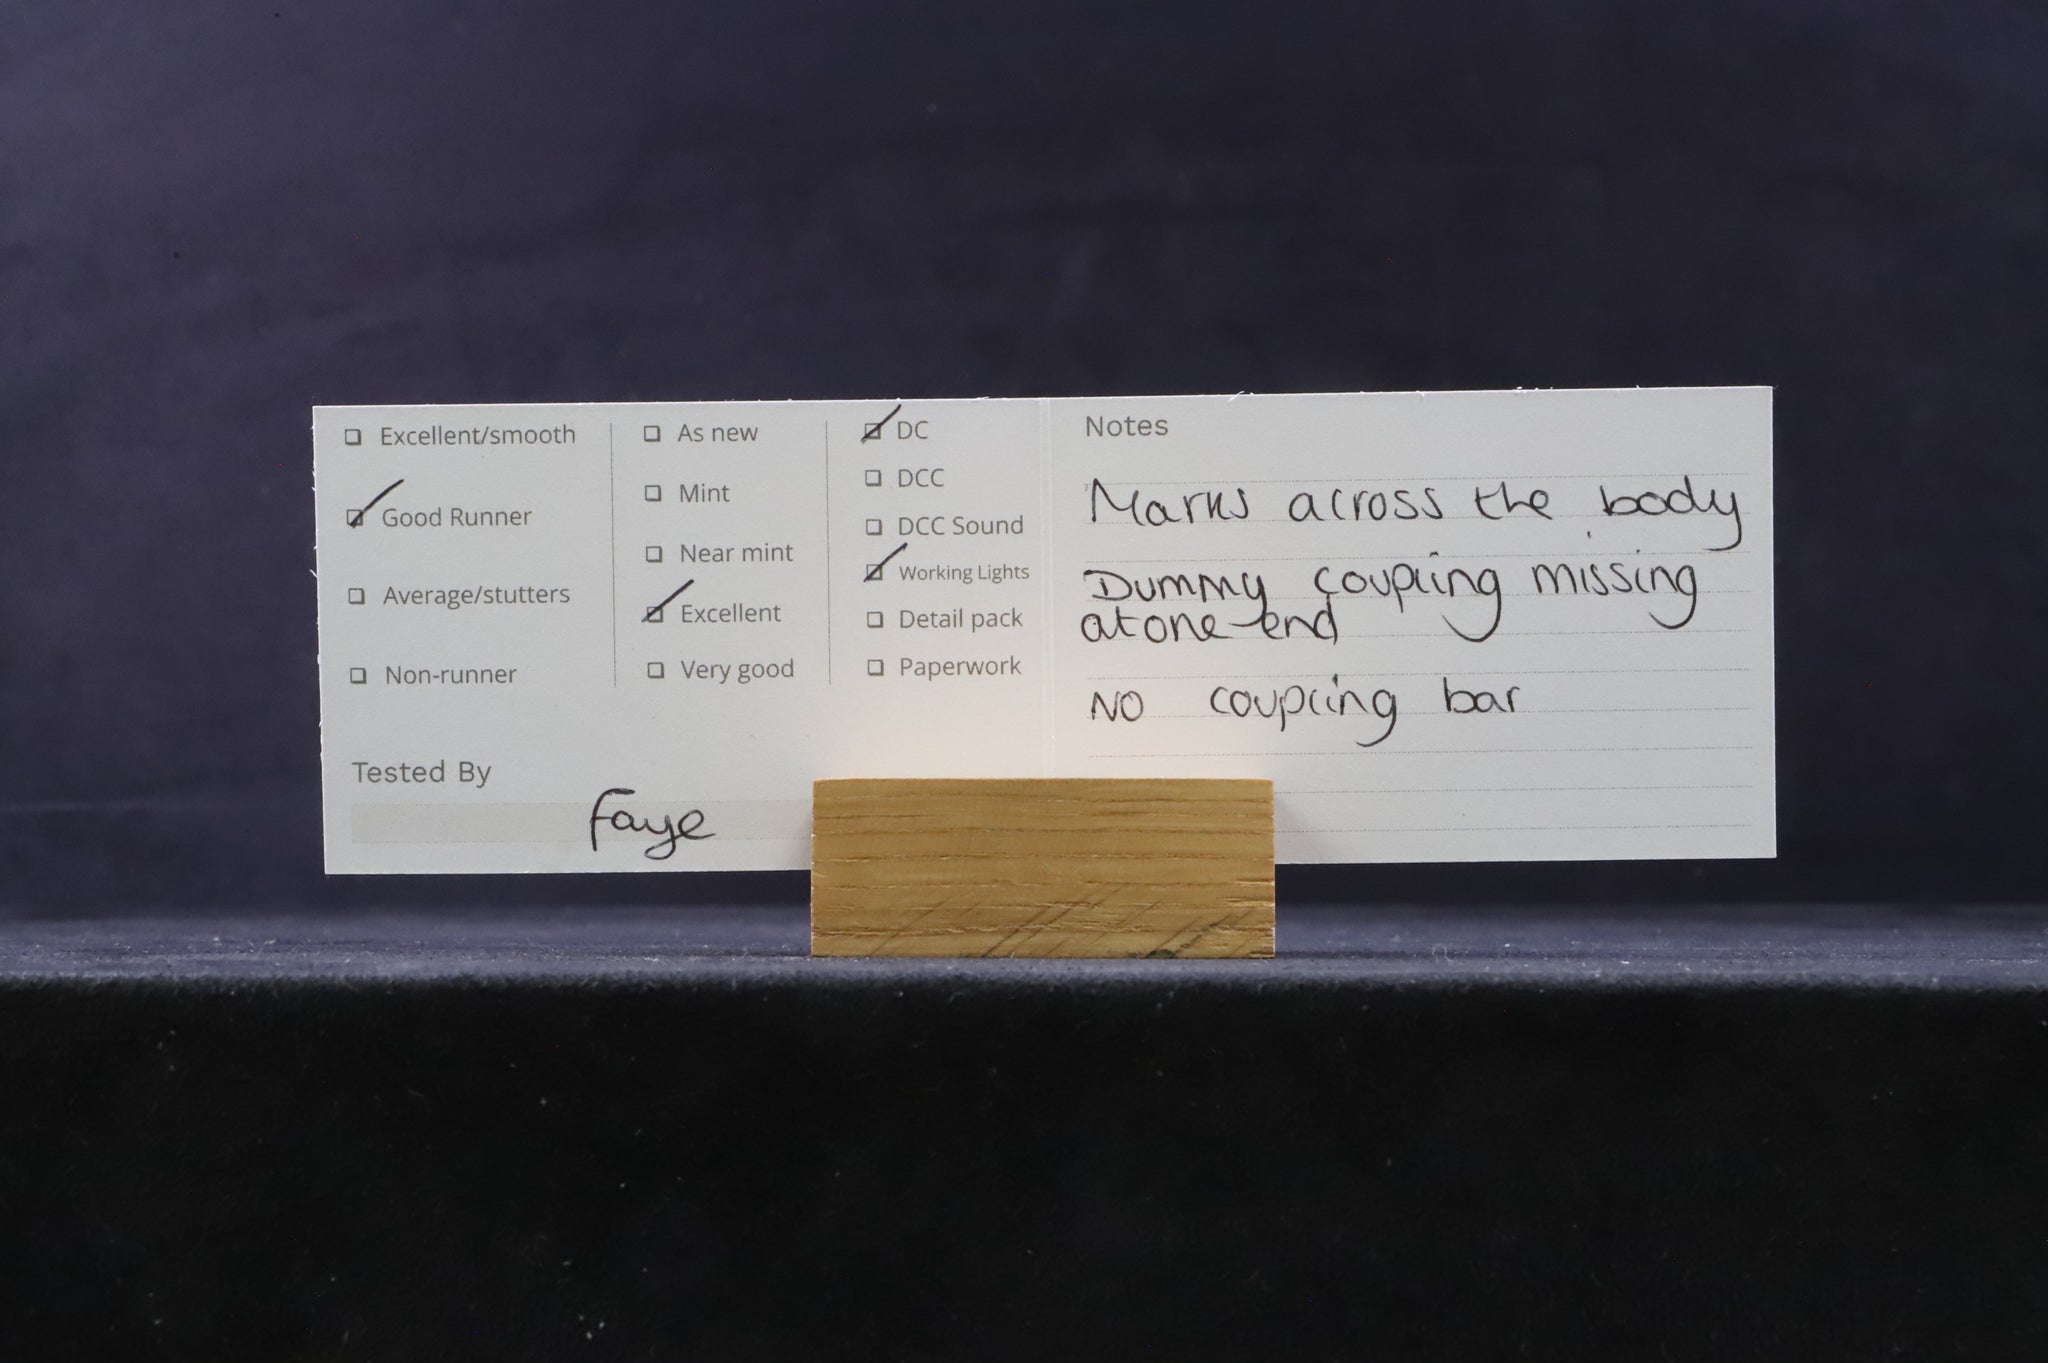 Excellent/smooth
Good Runner
Average/stutters
Non-runner
As new
Mint
Near mint
Excellent
Very good
DC
DCC
DCC Sound
Working Lights
Detail pack
Paperwork
Tested By
Faye
Notes
Marks across the body
Dummy coupling missing
at one end
NO coupling bar